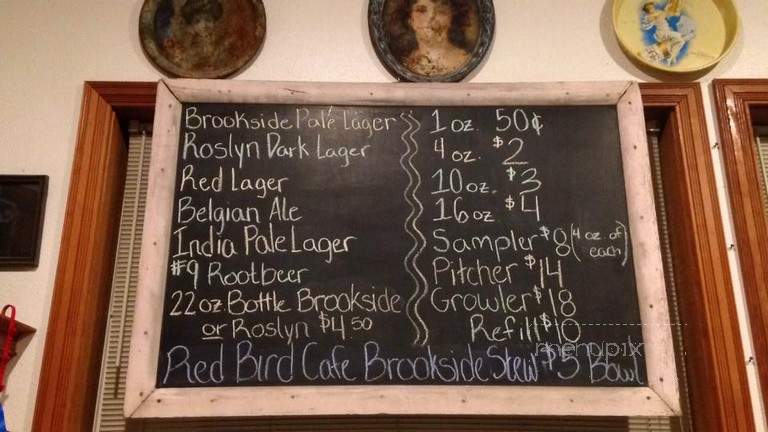 Brookside Pale Lager
Roslyn Dark Lager
Red Lager
Belgian Ale
India Pale Lager
#9 Rootbeer
22 oz. Bottle Brookside
or Roslyn $4.50
1 oz. 50¢
4 oz. $2
10 oz. $3
16 oz $4
Sampler $8 (4 oz. of
each)
Pitcher $14
Growler $18
Refill $10
Red Bird Cafe Brookside Stew $5 Bowl
menupix